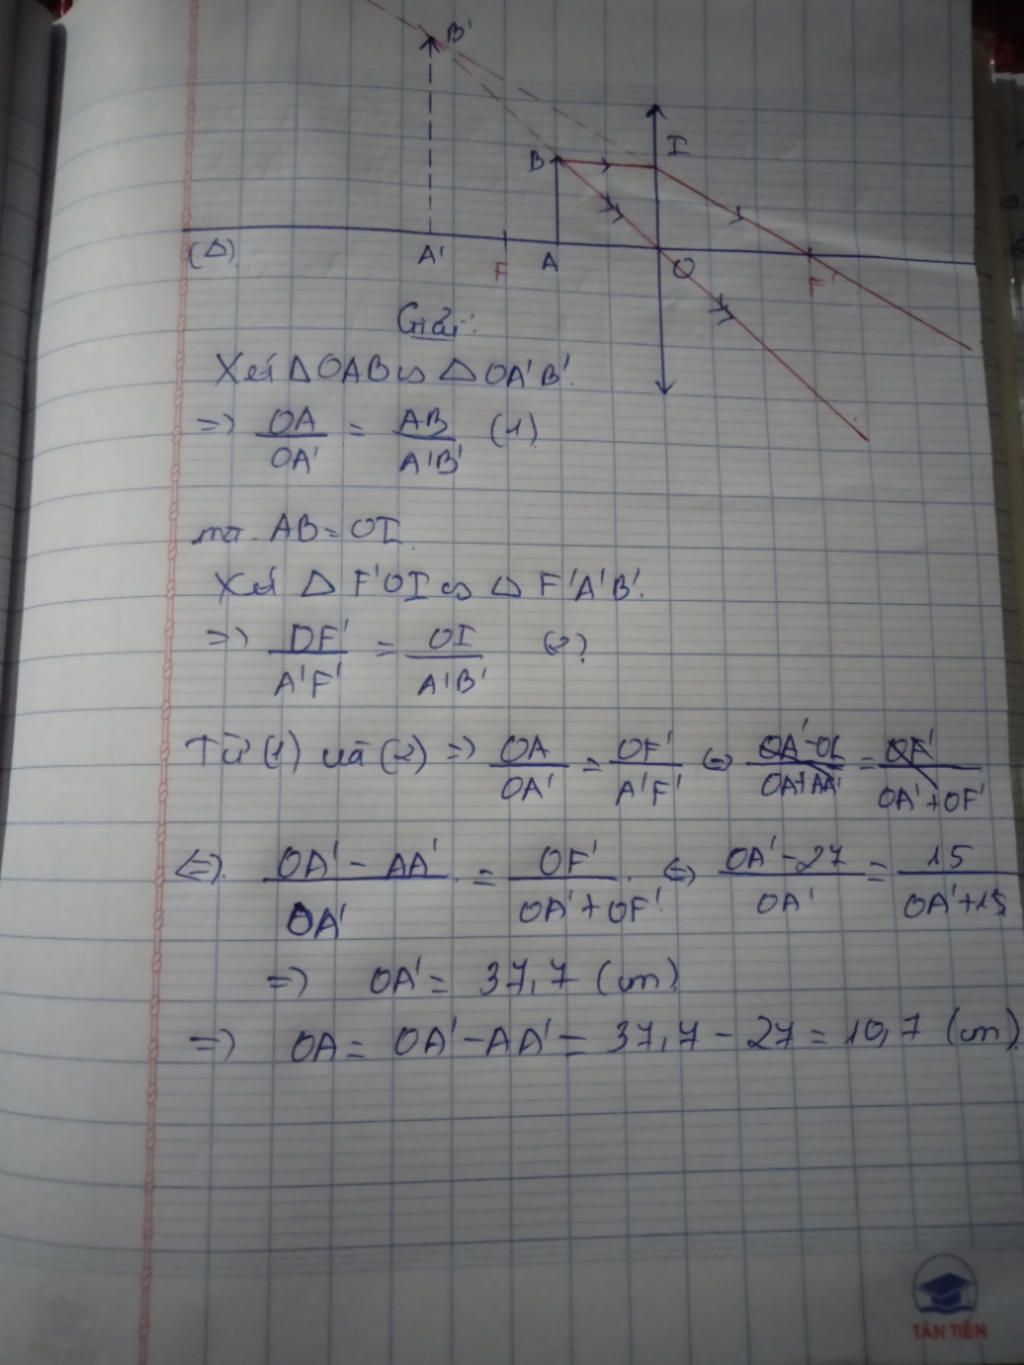 B'
B
I
(Δ)
A'
F
A
O
F'
Giải:
Xét ΔOAB ∽ ΔOA'B'.
=> OA/OA' = AB/A'B' (1)
mà AB = OI
Xét Δ F'OI ∽ Δ F'A'B'.
=> OF'/A'F' = OI/A'B' (2)
Từ (1) và (2) => OA/OA' = OF'/A'F' <=>
<=> (OA' - AA')/OA' = OF'/(OA' + OF') <=> (OA' - 27)/OA' = 15/(OA' + 15)
=> OA' = 37,7 (cm)
=> OA = OA' - AA' = 37,7 - 27 = 10,7 (cm)
TÂN TIẾN